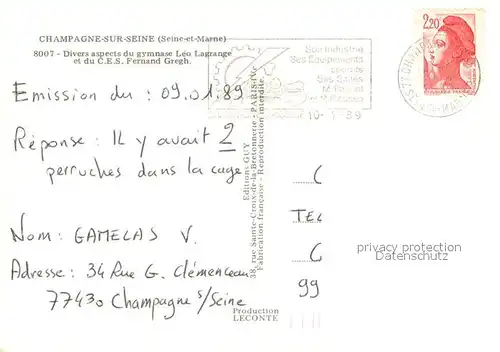 CHAMPAGNE-SUR-SEINE (Seine-et-Marne)
8007 - Divers aspects du gymnase Léo Lagrange
et du C.E.S. Fernand Gregh.
2,20
Son Industrie
Ses Equipements
sportifs
Ses Stades
10-1-89
Emission du : 09.01.89
Réponse : Il y avait 2
perruches dans la cage
Nom : GAMELAS V.
Adresse : 34 Rue G. Clémenceau
77430 Champagne s/Seine
Editions GUY
38, rue Sainte-Croix-de-la-Bretonnerie - PARIS-IVe
Fabrication française - Reproduction interdite.
C
TEL
C
99
privacy protection
Datenschutz
Production
LECONTE